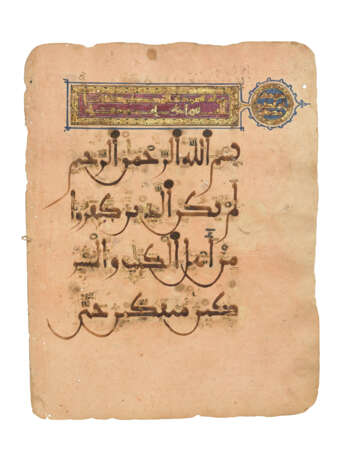 بسم الله الرحمن الرحيم
لم يكن الذين كفروا
من أهل الكتب والمشر
كين منفكين حتى